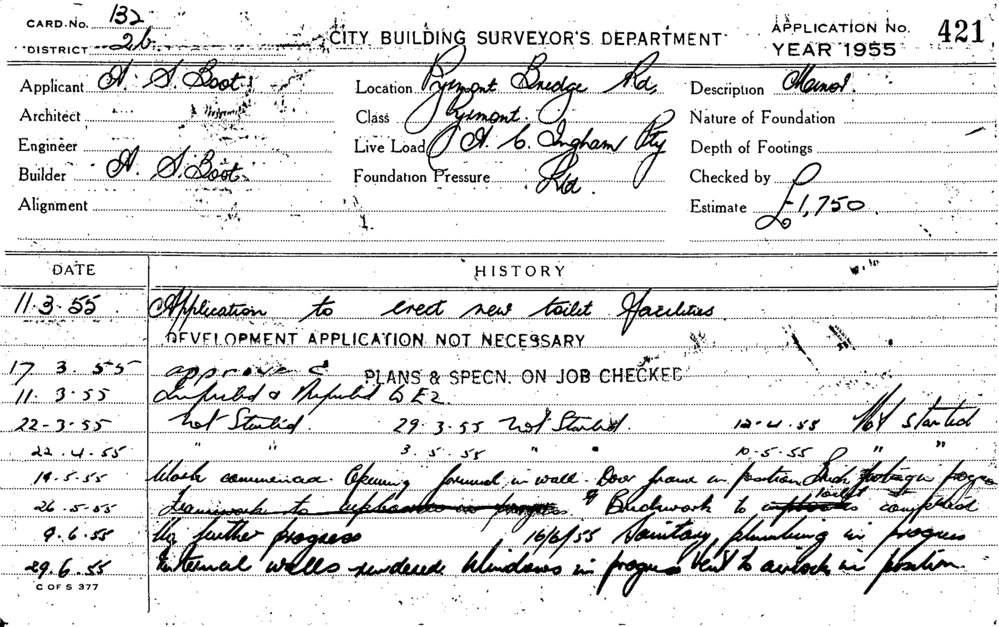 CARD. No. 132
DISTRICT 2b
CITY BUILDING SURVEYOR'S DEPARTMENT
APPLICATION No. 421
YEAR 1955
Applicant A. S. Boot
Architect
Engineer
Builder A. S. Boot
Alignment
Location Pyrmont Bridge Rd,
Class Pyrmont.
Live Load A. C. Ingham Pty
Foundation Pressure Ltd.
Description
Nature of Foundation
Depth of Footings
Checked by
Estimate £1,750
DATE HISTORY
11.3.55 Application to erect new toilet facilities.
DEVELOPMENT APPLICATION NOT NECESSARY
17 3. 55 approve
PLANS & SPECN. ON JOB CHECKED
11. 3.55 Inspected &
22-3-55 Not Started. 29.3.55 Not Started. 12-4.55 Not started
22.4.55 " " 3.5.55 " " 10-5.55 " "
19.5.55 Work commenced. Opening formed in wall. Door frame in position
26.5.55 Brickwork to toilet completed
9.6.55 No further progress 16/6/55 Sanitary plumbing in progress
29.6.55 Internal walls rendered Windows in progress Vent to airlock in position.
C OF S 377